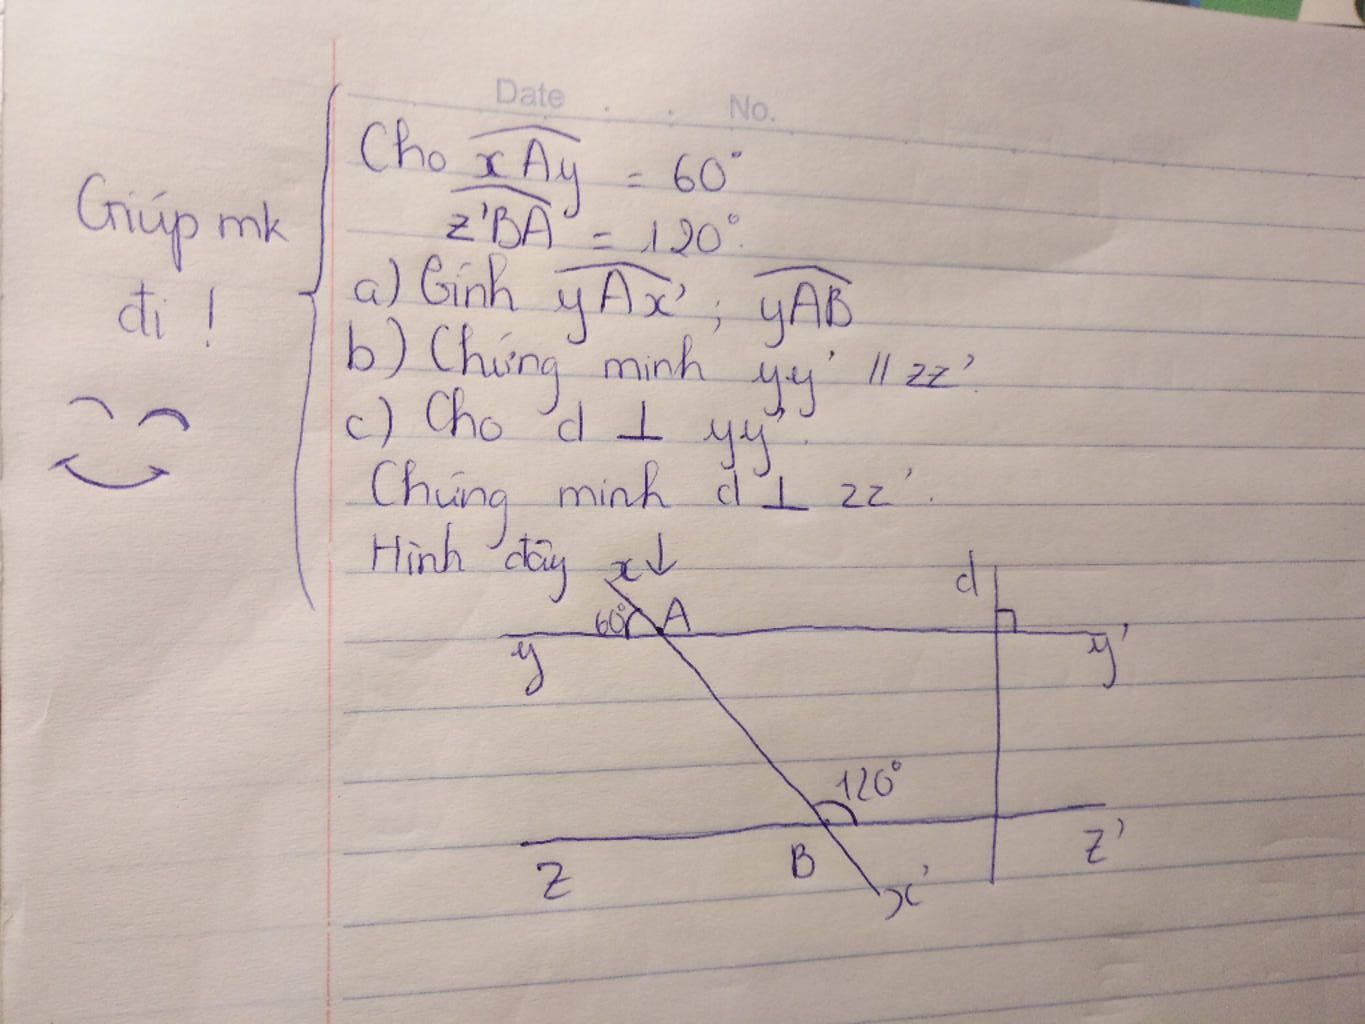 Date . . No.
Giúp mk
đi !
Cho xAy = 60°
z'BA = 120°.
a) Tính yAx' ; yAB
b) Chứng minh yy' // zz'.
c) Cho d ⊥ yy'.
Chứng minh d ⊥ zz'.
Hình đây ↓
x
60°
A
d
y
y'
120°
B
z
z'
x'